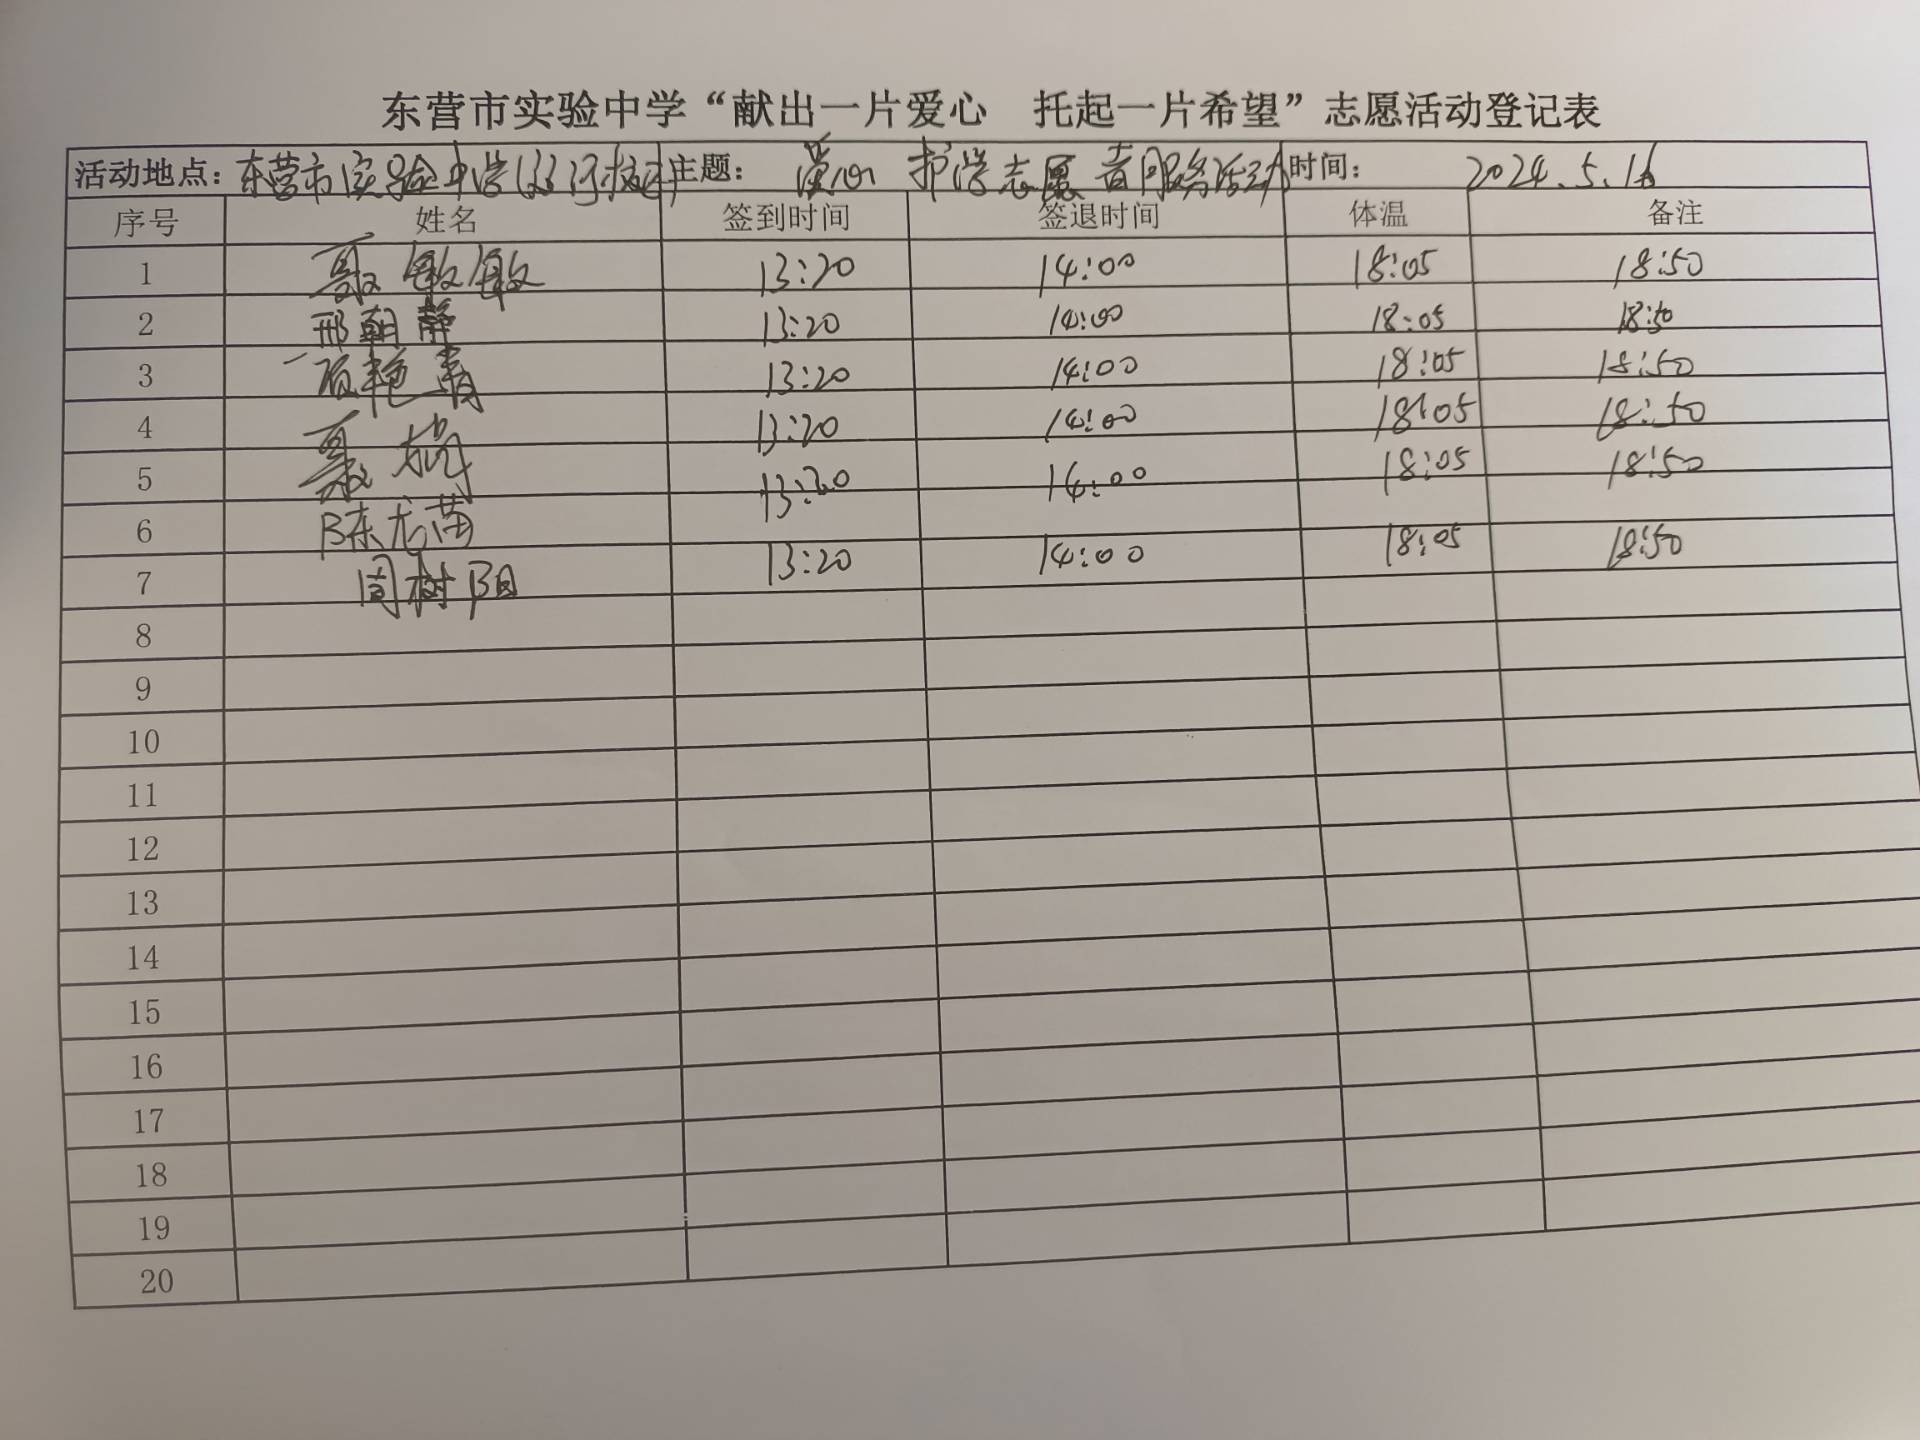 东营市实验中学“献出一片爱心 托起一片希望”志愿活动登记表
活动地点：东营市实验中学 主题：爱心护学志愿者服务活动 时间：2024.5.16
序号 姓名 签到时间 签退时间 体温 备注
1 聂敏敏 13:20 14:00 18:05 18:50
2 邢朝静 13:20 14:00 18:05 18:50
3 项艳青 13:20 14:00 18:05 18:50
4 13:20 14:00 18:05 18:50
5 聂 13:20 14:00 18:05 18:50
6 陈龙苗
7 周树阳 13:20 14:00 18:05 18:50
8
9
10
11
12
13
14
15
16
17
18
19
20